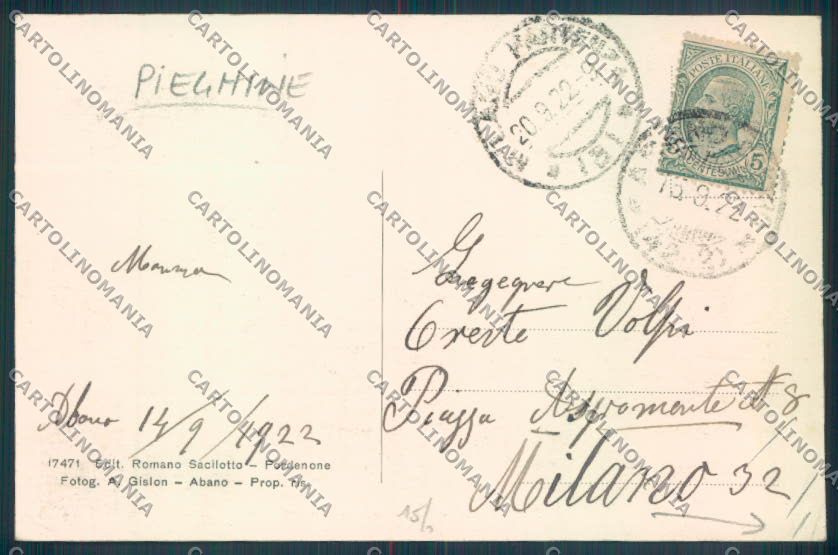 PIEGHINE
POSTE ITALIANE
5
CENTESIMI
20.9.22
Ingegnere
Oreste Volpi
Piazza Aspromonte N 8
Milano 32
Abano 14/9/1922
17471 Edit. Romano Sacilotto – Pordenone
Fotog. A. Gislon – Abano – Prop. ris.
15/
CARTOLINOMANIA